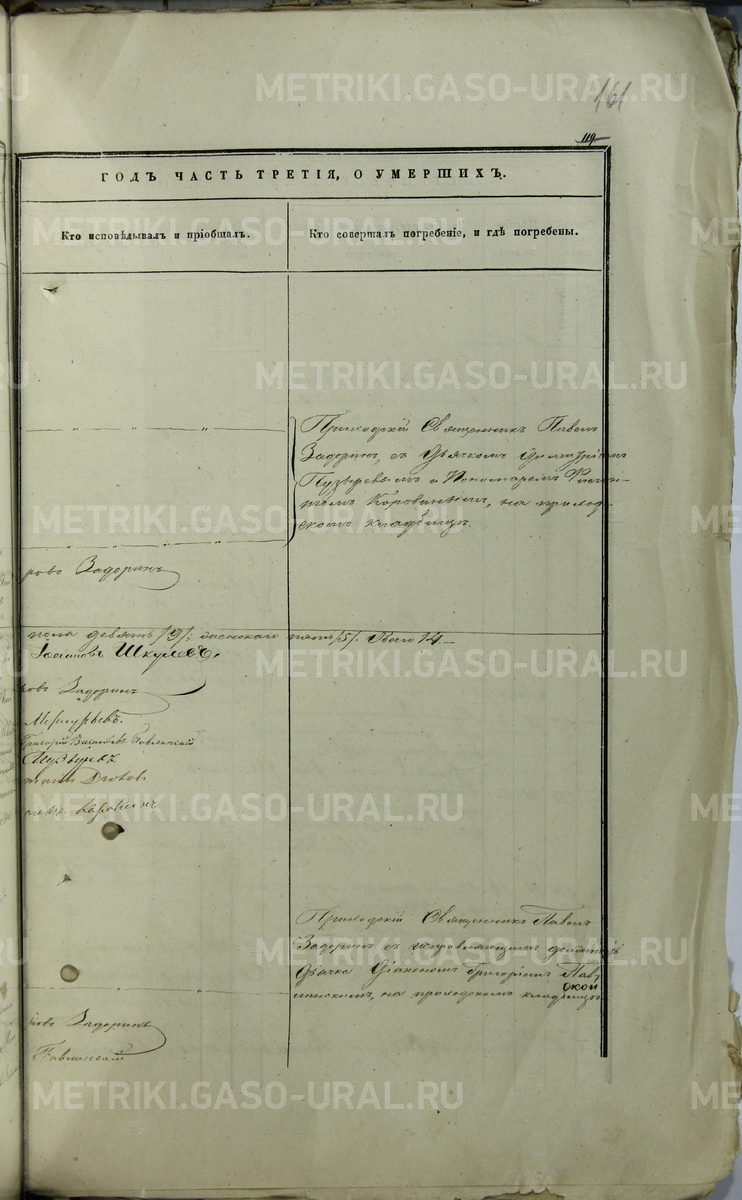 161
119
ГОДЪ ЧАСТЬ ТРЕТІЯ, О УМЕРШИХЪ.
Кто исповѣдывалъ и пріобщалъ.
Кто совершалъ погребеніе, и гдѣ погребены.
Приходскій Священникъ Павелъ
Задоринъ, съ Дьячкомъ Димитріемъ
Пузыревымъ и Пономаремъ
Коровинымъ, на приход-
скомъ кладбищѣ.
ровъ Задоринъ
пола девять /9/; женскаго пять /5/. Всего 14
Шкулевъ,
ровъ Задоринъ
Меркурьевъ.
Григорій Васильевъ
Пузыревъ
Коровинъ
Приходскій Священникъ Павелъ
Задоринъ съ исправляющимъ должность
Дьячка Діакономъ Григоріемъ
на приходскомъ кладбищѣ
ровъ Задоринъ
METRIKI.GASO-URAL.RU